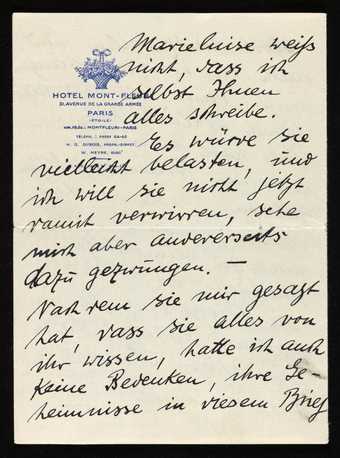 Marieluise weiß
nicht, dass ich
selbst Ihnen
alles schreibe.
HOTEL MONT-FLEURI
21, AVENUE DE LA GRANDE ARMÉE
PARIS
(ÉTOILE)
Es würde sie
vielleicht belasten, und
ich will sie nicht jetzt
damit verwirren, sehe
mich aber andererseits
dazu gezwungen. —
Nachdem sie mir gesagt
hat, dass Sie alles von
ihr wissen, hatte ich auch
keine Bedenken, ihre Ge-
heimnisse in diesem Brief